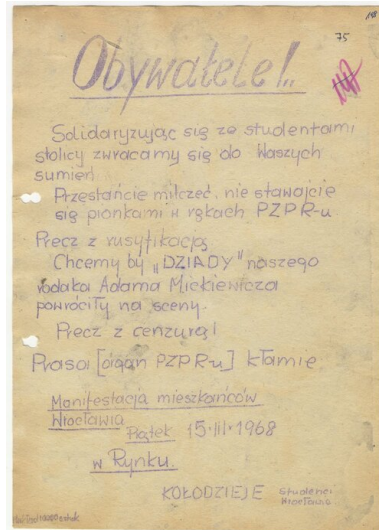 118
75
Obywatele!..
Solidaryzując się ze studentami
stolicy zwracamy się do Waszych
sumień
Przestańcie milczeć, nie stawajcie
się pionkami w rękach PZPR-u
Precz z rusyfikacją
Chcemy by "DZIADY" naszego
rodaka Adama Mickiewicza
powróciły na sceny.
Precz z cenzurą!
Prasa [organ PZPR-u] kłamie
Manifestacja mieszkańców
Wrocławia
Piątek 15·III·1968
w Rynku.
KOŁODZIEJE Studenci
Wrocławia